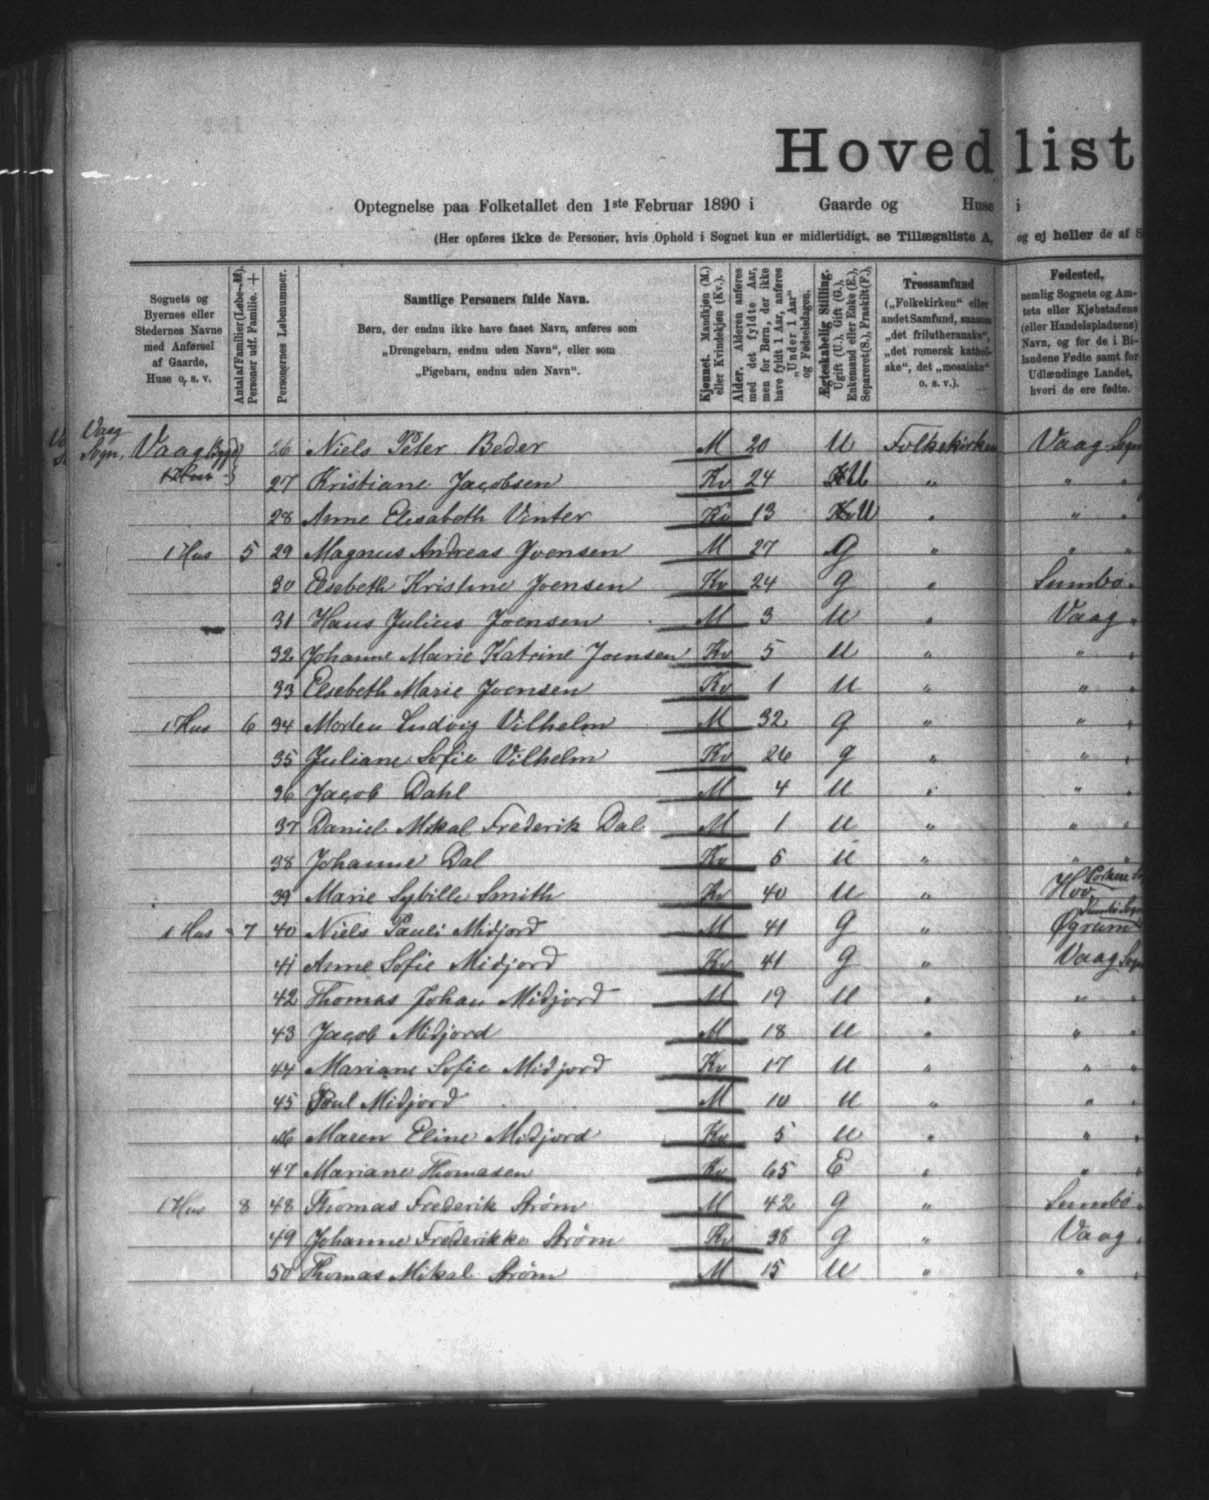 Hovedlist
Optegnelse paa Folketallet den 1ste Februar 1890 i Gaarde og Huse i
(Her opføres ikke de Personer, hvis Ophold i Sognet kun er midlertidigt, se Tillægsliste A, og ej heller de af S
Sognets og Byernes eller Stedernes Navne med Anførsel af Gaarde, Huse o. s. v.
Antal af Familier (Løbe-№). Personer udf. Familie. +
Personernes Løbenummer.
Samtlige Personers fulde Navn.
Børn, der endnu ikke have faaet Navn, anføres som
„Drengebarn, endnu uden Navn“, eller som
„Pigebarn, endnu uden Navn“.
Kjønnet. Mandkjøn (M.) eller Kvindekjøn (Kv.).
Alder. Alderen anføres med det fyldte Aar, men for Børn, der ikke have fyldt 1 Aar, anføres „Under 1 Aar“ og Fødselsdagen.
Ægteskabelig Stilling. Ugift (U.), Gift (G.), Enkemand eller Enke (E.), Separeret (S.), Fraskilt (F.).
Trossamfund („Folkekirken“ eller andet Samfund, saasom „det frilutheranske“, „det romersk katholske“, det „mosaiske“ o. s. v.).
Fødested, nemlig Sognets og Amtets eller Kjøbstadens (eller Handelspladsens) Navn, og for de i Bilandene Fødte samt for Udlændinge Landet, hvori de ere fødte.
Vaag Sogn.
Vaag Bygd 26 Niels Peter Beder M 20 U Folkekirken Vaag Sogn
1 Hus 27 Kristiane Jacobsen Kv 24 U „ „ „
28 Anne Elisabeth Vinter Kv 13 U „ „ „
1 Hus 5 29 Magnus Andreas Joensen M 27 G „ „ „
30 Elsebeth Kristine Joensen Kv 24 G „ Sumbø „
31 Hans Julius Joensen M 3 U „ Vaag „
32 Johanne Marie Katrine Joensen Kv 5 U „ „ „
33 Elsebeth Marie Joensen Kv 1 U „ „ „
1 Hus 6 34 Morten Ludvig Vilhelm M 32 G „ „ „
35 Juliane Sofie Vilhelm Kv 26 G „ „ „
36 Jacob Dahl M 4 U „ „ „
37 Daniel Mikal Frederik Dal M 1 U „ „ „
38 Johanne Dal Kv 5 U „ „ „
39 Marie Sybille Smith Kv 40 U „ Hov
1 Hus 7 40 Niels Pauli Midjord M 41 G „ Øgrum
41 Anne Sofie Midjord Kv 41 G „ Vaag Sogn
42 Thomas Johan Midjord M 19 U „ „ „
43 Jacob Midjord M 18 U „ „ „
44 Mariane Sofie Midjord Kv 17 U „ „ „
45 Poul Midjord M 10 U „ „ „
46 Maren Eline Midjord Kv 5 U „ „ „
47 Mariane Thomasen Kv 65 E „ „ „
1 Hus 8 48 Thomas Frederik Strøm M 42 G „ Sumbø „
49 Johanne Frederikke Strøm Kv 38 G „ Vaag „
50 Thomas Mikal Strøm M 15 U „ „ „